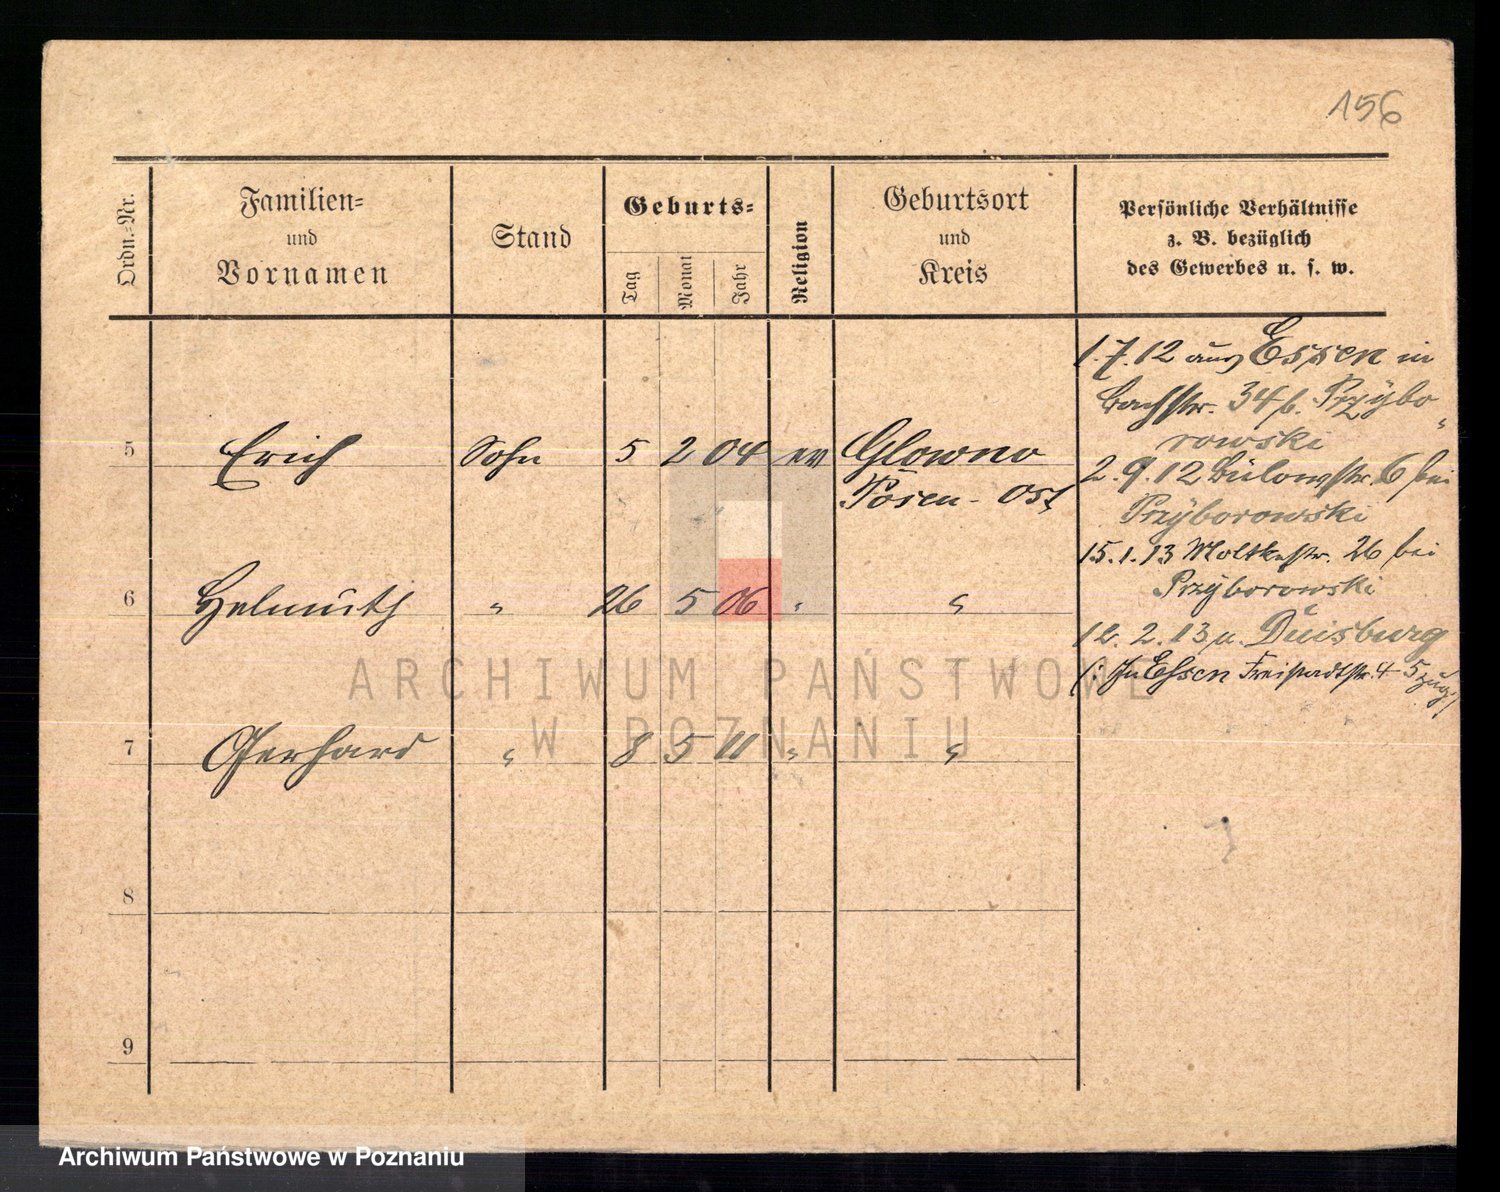 156
Ordn.-Nr.
Familien-
und
Vornamen
Stand
Geburts-
Tag
Monat
Jahr
Religion
Geburtsort
und
Kreis
Persönliche Verhältnisse
z. B. bezüglich
des Gewerbes u. s. w.
5 Erich Sohn 5 2 04 ev Glowno
Posen-Ost
6 Helmuth " 26 5 06 " "
7 Gerhard " 8 5 11 " "
8
9
1.7.12 aus Essen in
Bachstr. 34 b. Przybo-
rowski
2.9.12 Bülowstr. 6 bei
Przyborowski
15.1.13 Moltkestr. 26 bei
Przyborowski
12.2.13 n. Duisburg
(: In Essen Freistadtstr. 45
ARCHIWUM PAŃSTWOWE
W POZNANIU
Archiwum Państwowe w Poznaniu